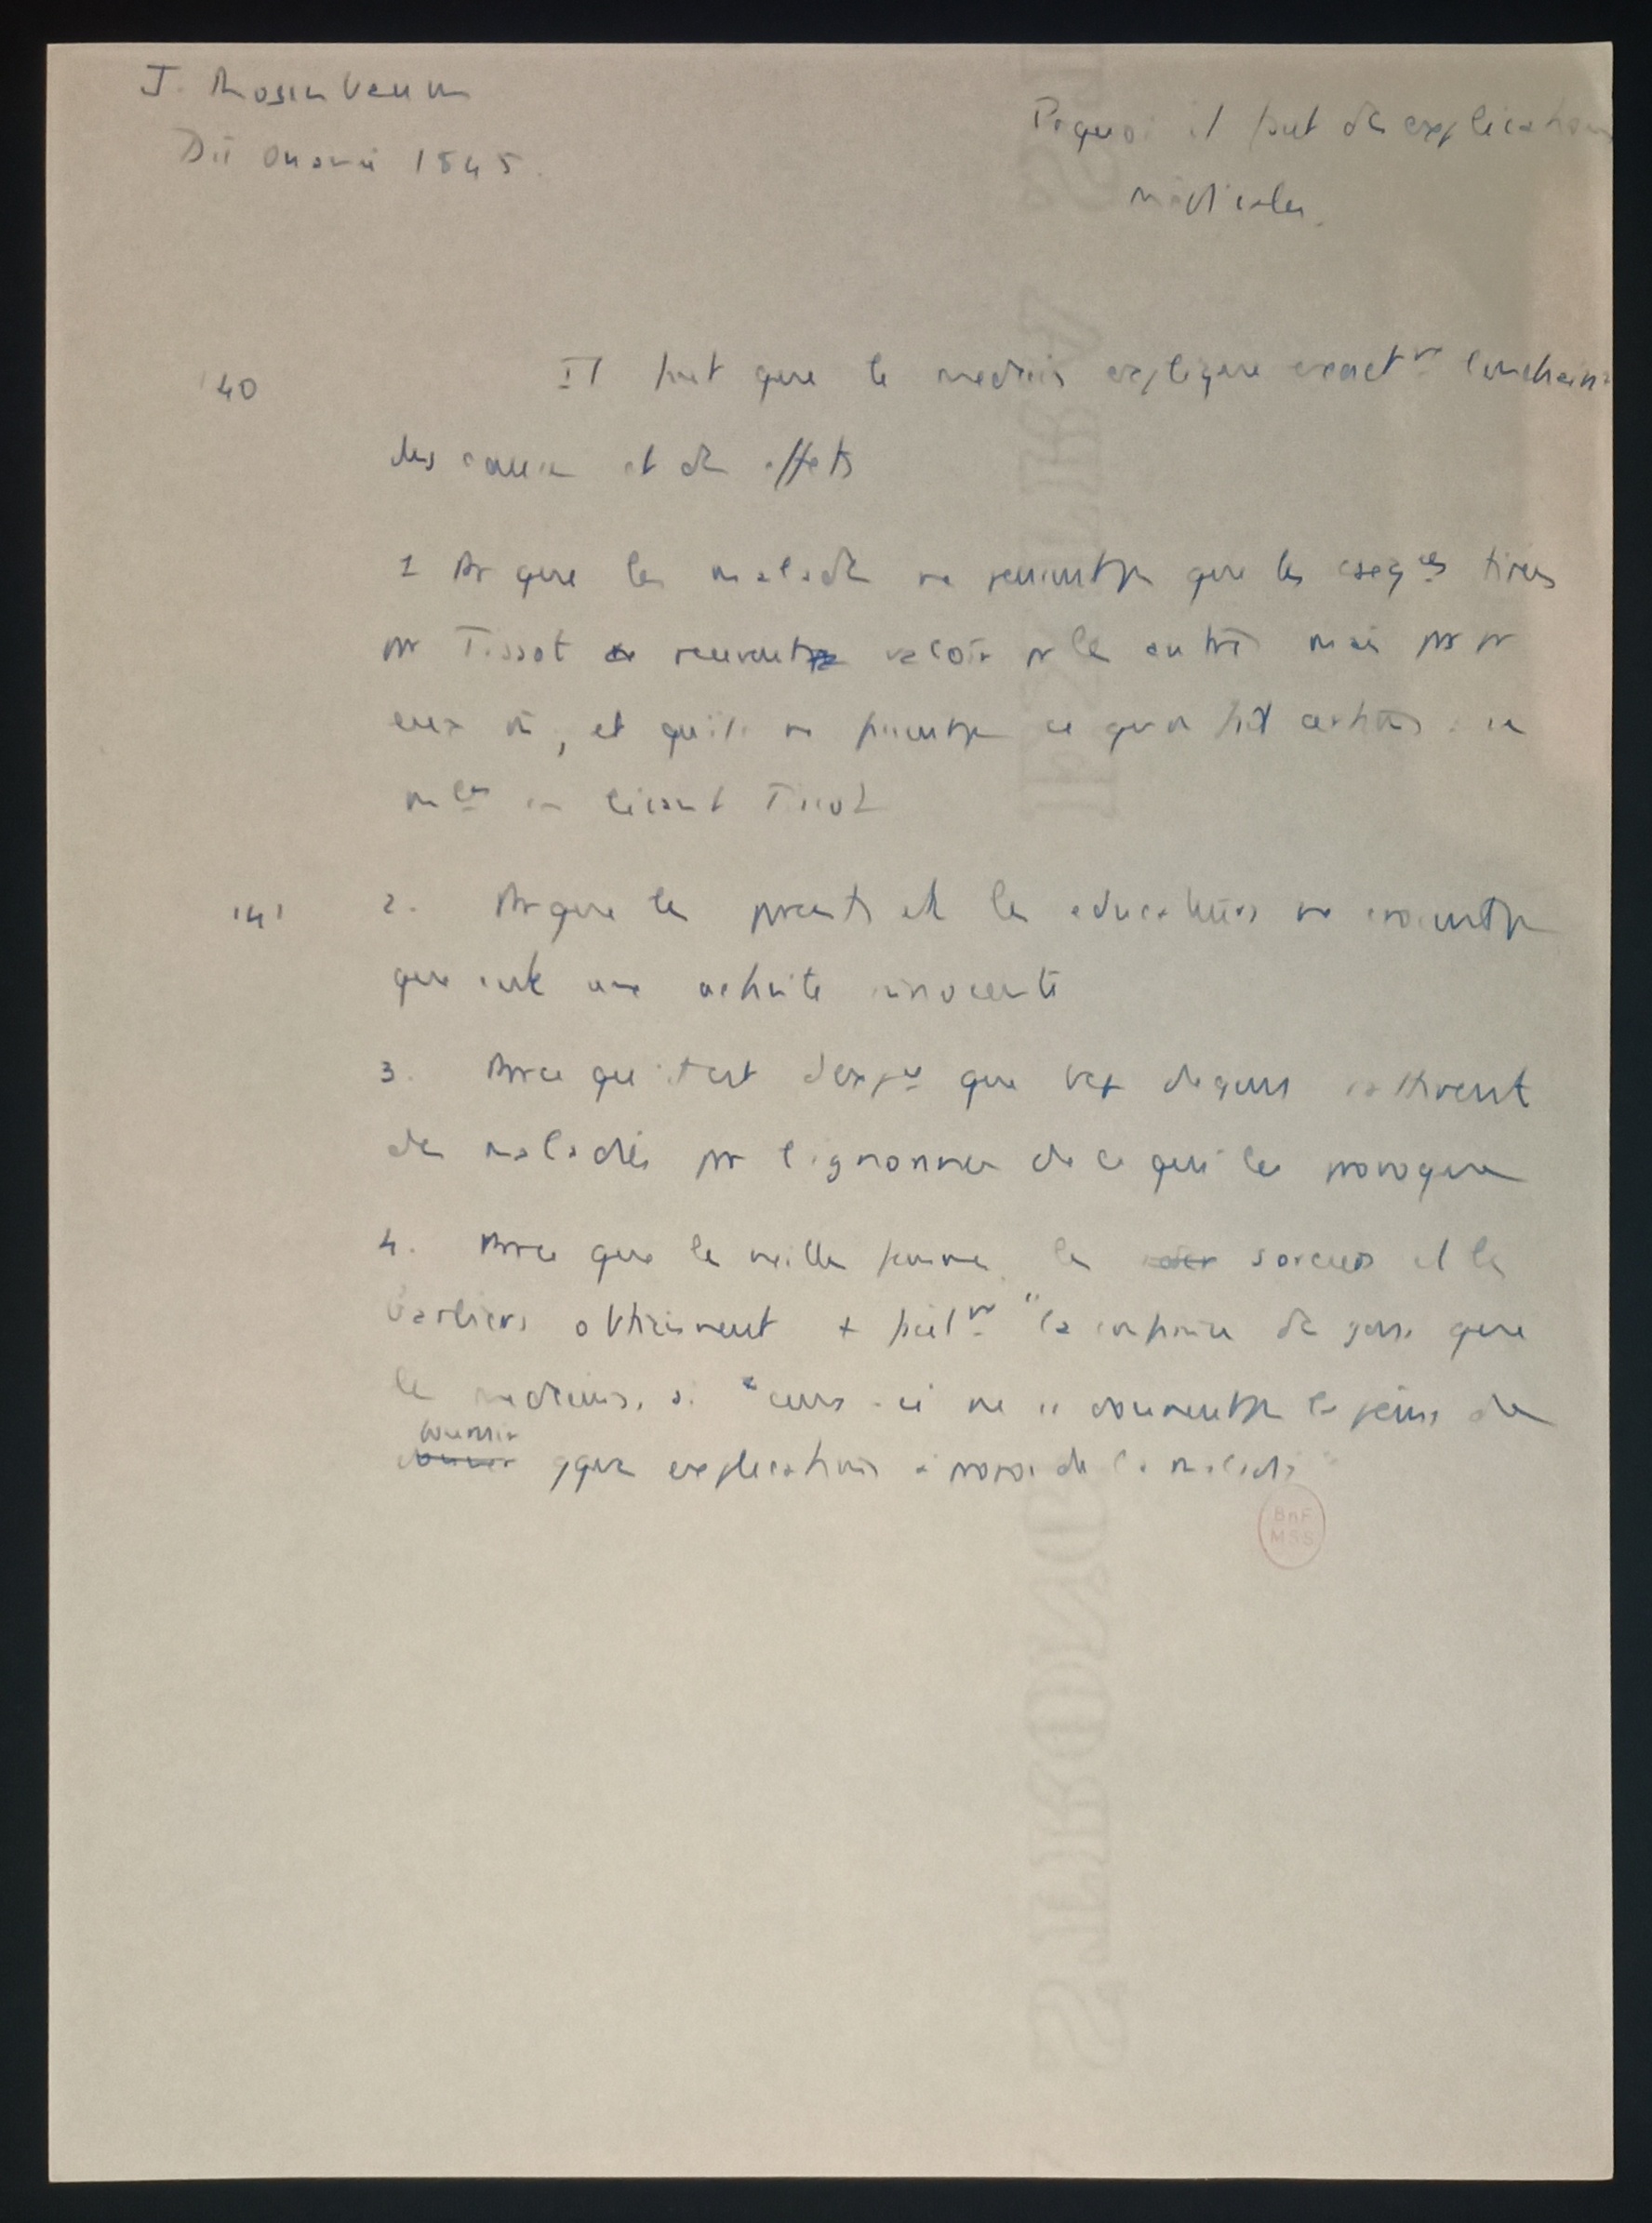 J. Rosenbaum
Die Onanie 1845.
Pquoi il faut des explications
médicales.
140
Il faut que le médecin explique exactmt l'enchaint
des causes et des effets
1 Pr que les malades ne pensent pas que les cseqces tirées
par Tissot peuvent valoir pr les autres mais pas pr
eux, et qu'ils ne fassent pas ce qu'on fait certains :
en lisant Tissot
141
2. Pr que les parents et les éducateurs ne croient pas
que c'est une activité innocente
3. Parce qu'il est que bcp de gens attirent
des maladies par l'ignorance de ce qui les provoque
4. Parce que les vieilles femmes, les sorciers et les
barbiers obtiennent + facilmt "la confiance des gens que
les médecins, si ceux-ci ne se donnent pas la peine de
fournir
qques explications à propos de la maladie"
BnF
MSS